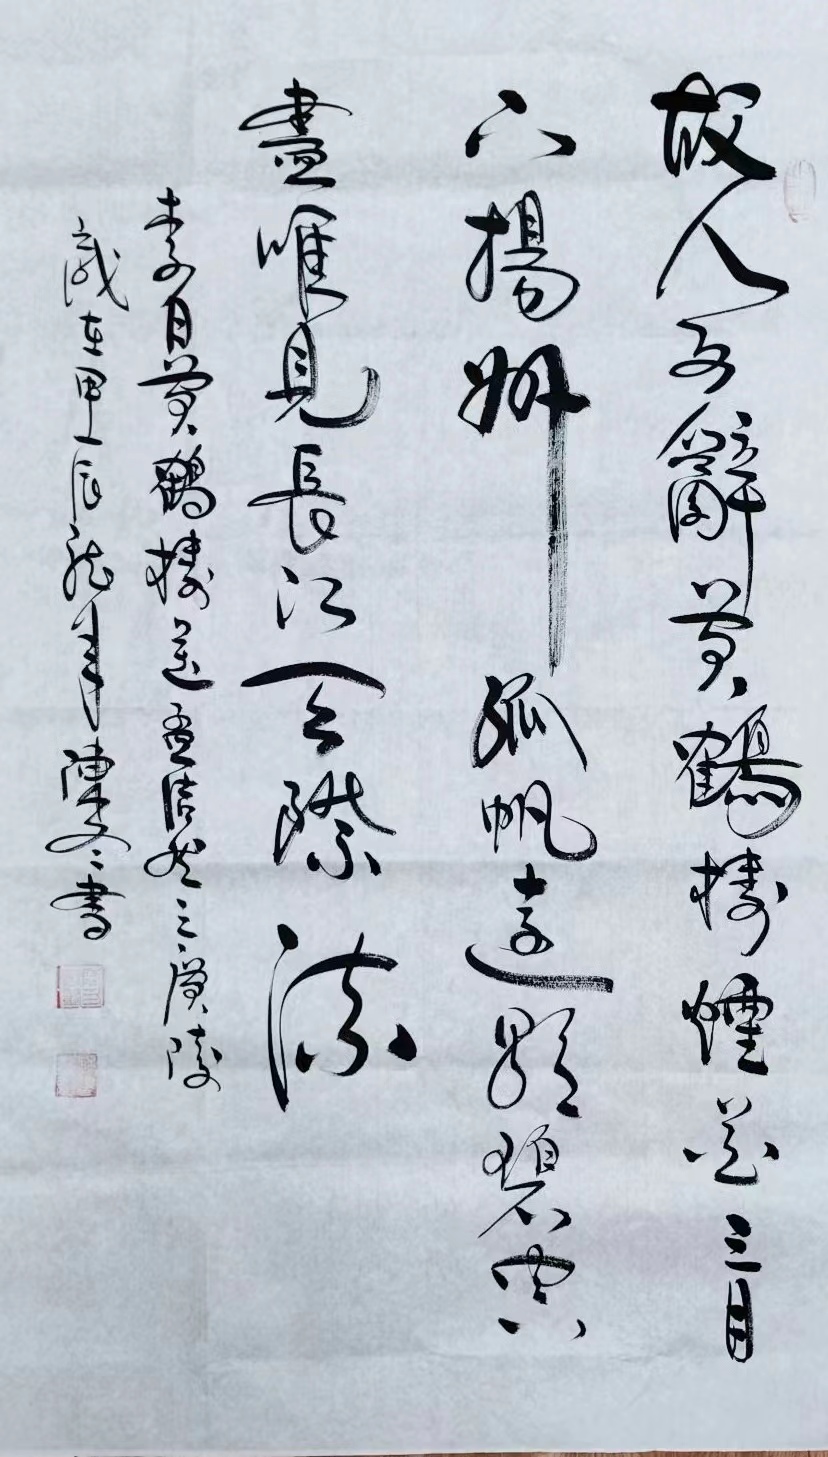 故人西辭黄鶴樓煙花三月
下揚州孤帆遠影碧空
盡唯見長江天際流
李白黄鶴樓送孟浩然之廣陵
歲在甲辰龍年陳文書